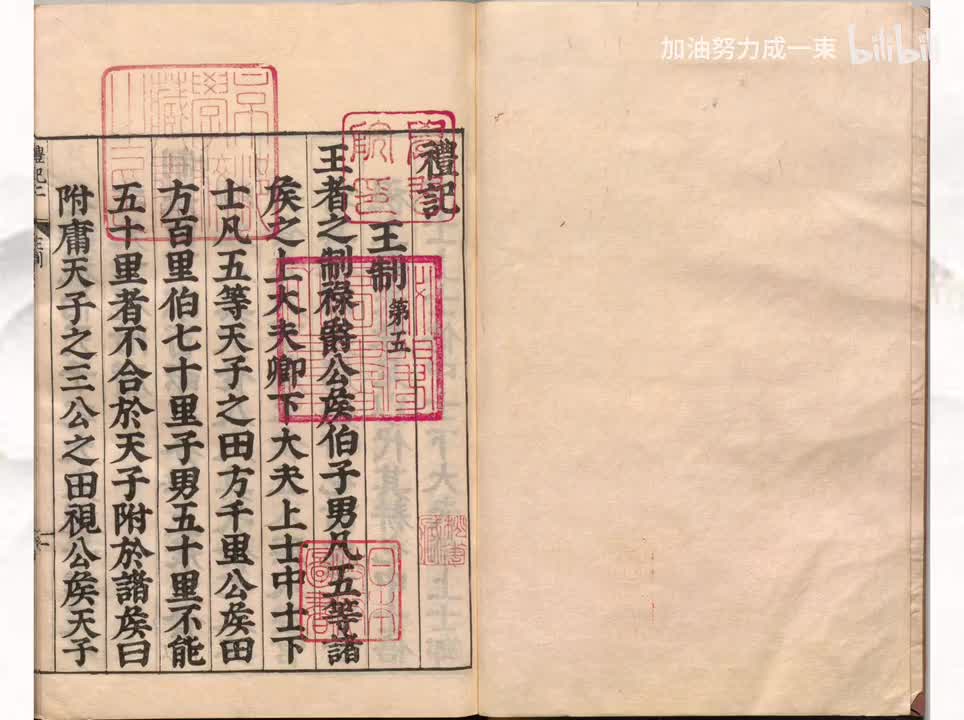 禮記
王制第五
王者之制祿爵公侯伯子男凡五等諸
侯之上大夫卿下大夫上士中士下
士凡五等天子之田方千里公侯田
方百里伯七十里子男五十里不能
五十里者不合於天子附於諸侯曰
附庸天子之三公之田視公侯天子
加油努力成一束
bilibili